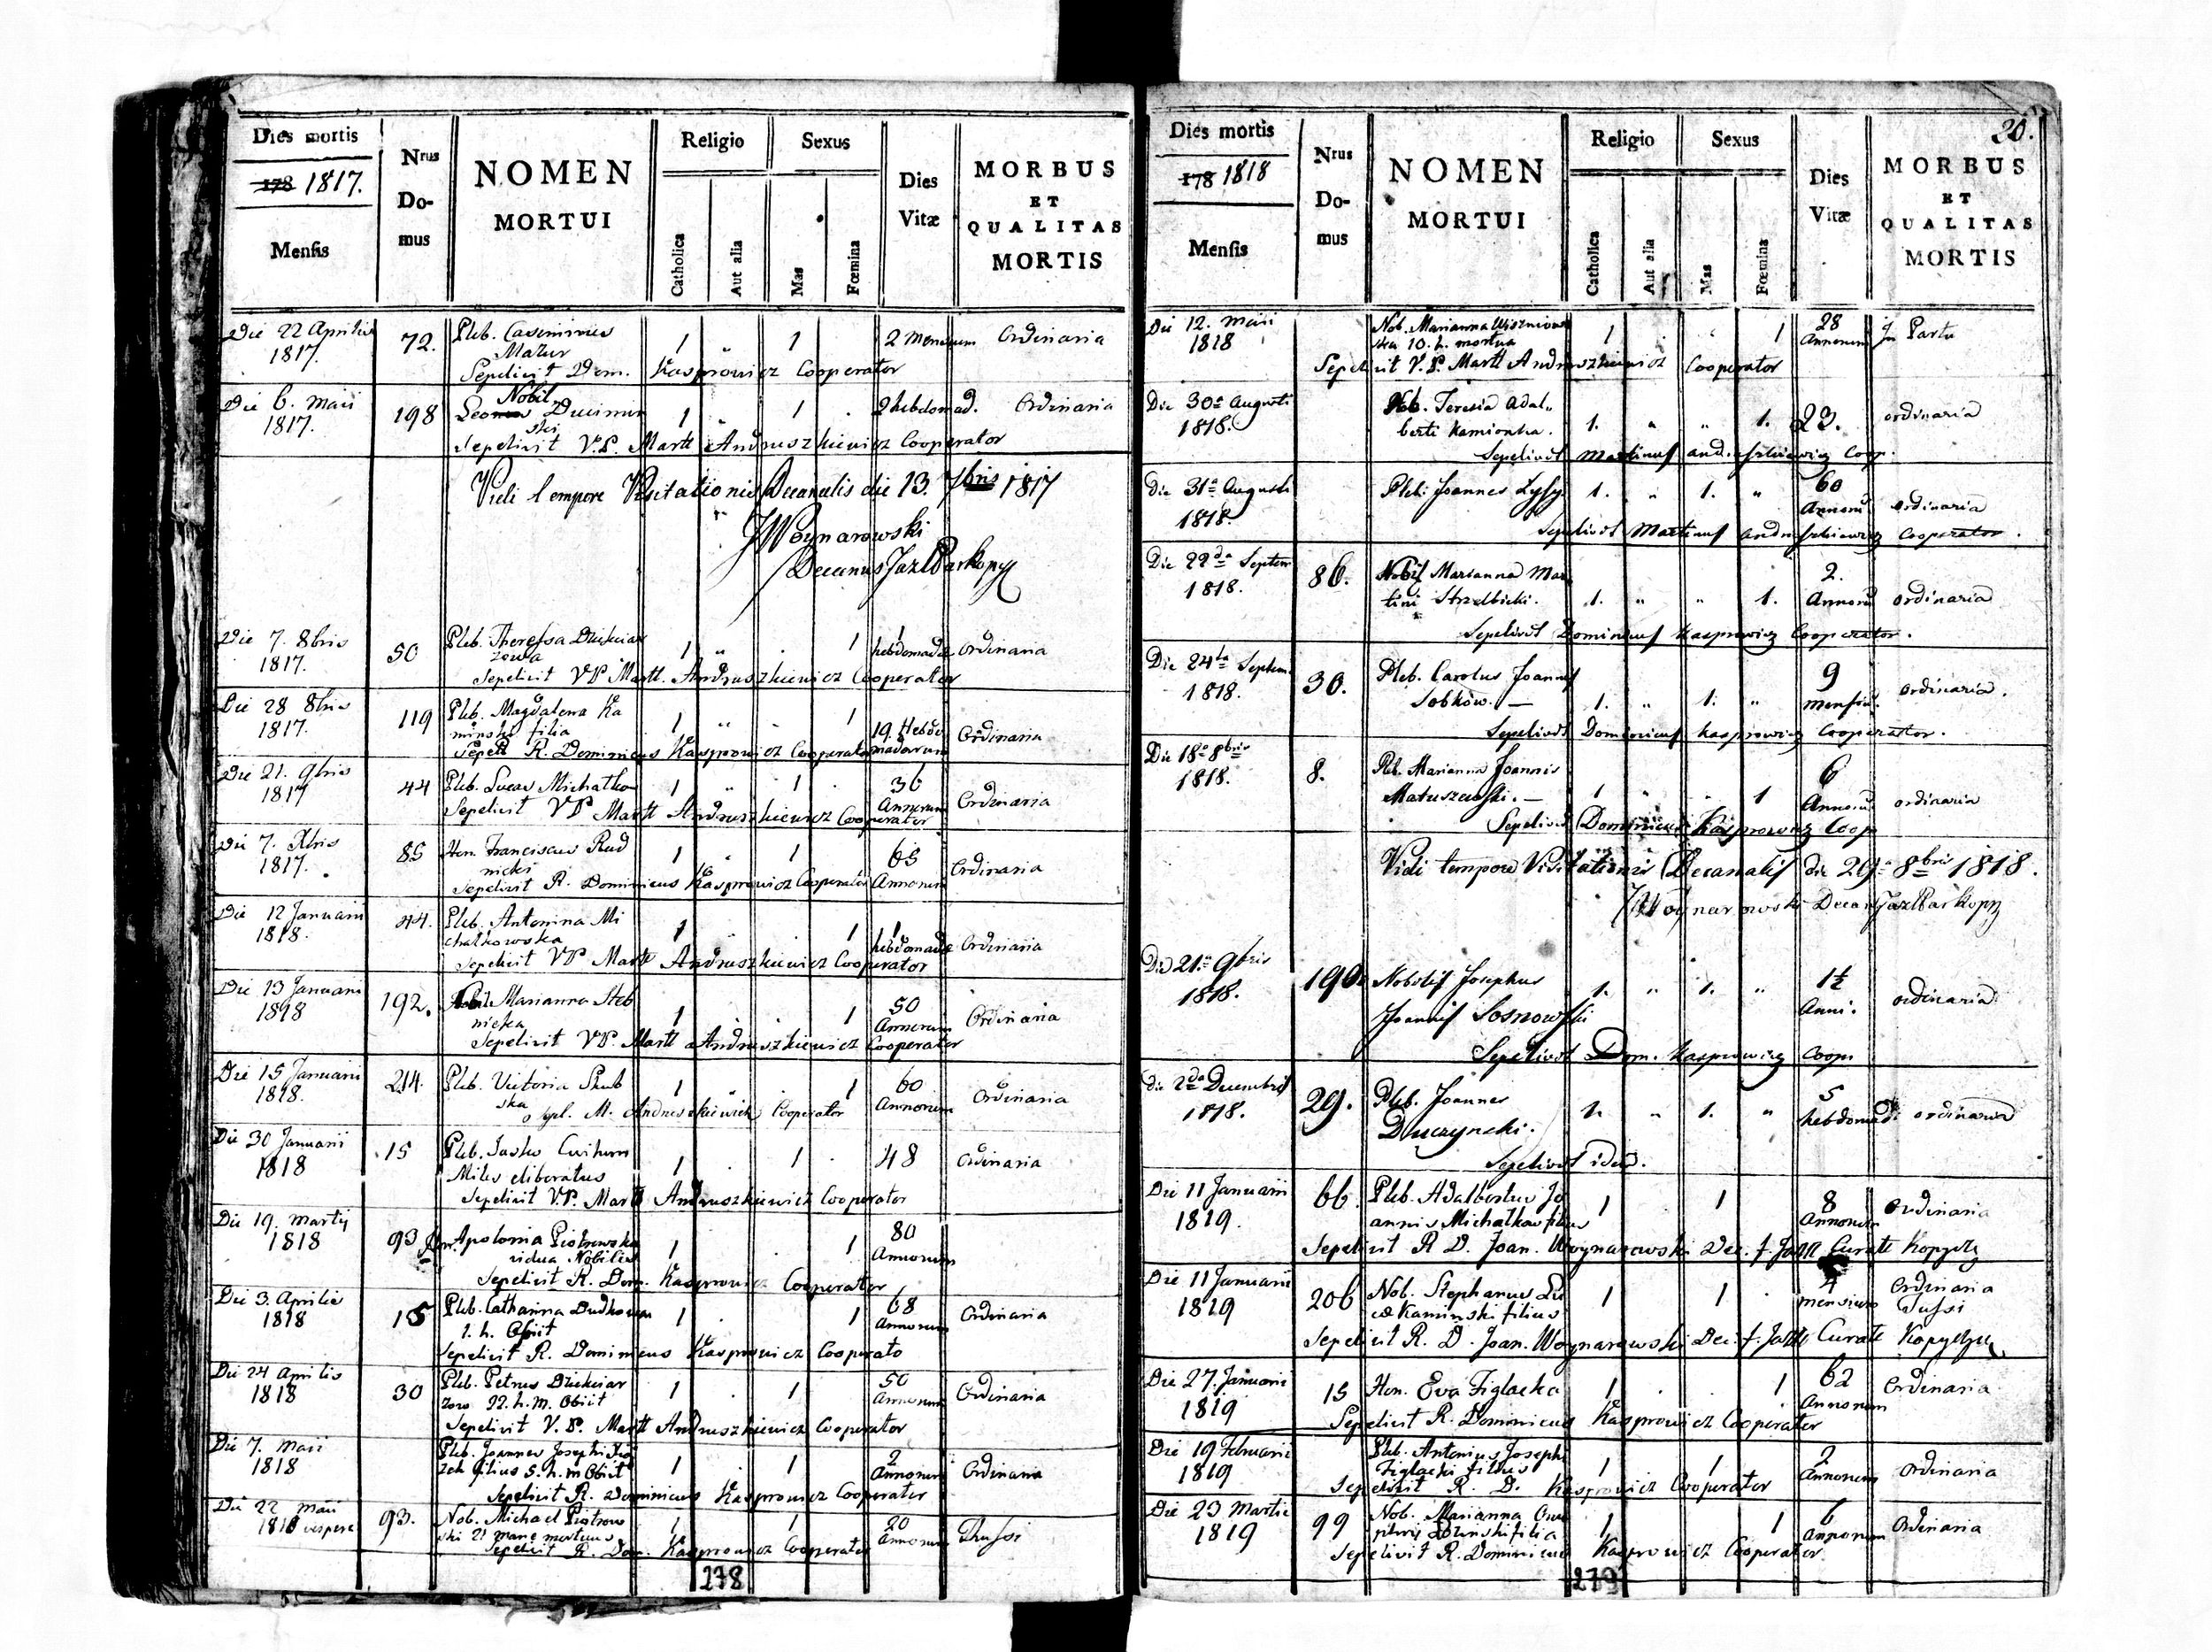 Dies mortis
178 1817.
Mensis
Nrus Domus
NOMEN
MORTUI
Religio
Catholica
Aut alia
Sexus
Mas
Fœmina
Dies
Vitæ
MORBUS
ET
QUALITAS
MORTIS
Die 22 Aprilis 72. Pleb. Casimirus 1 " 1 2 Mensium Ordinaria
1817. Mazur
Sepelivit Dom. Kasprowicz Cooperator
Die 6. Maii 198 Nobil. 1 " 1 . 2 hebdomad. Ordinaria
1817. Ducimin
ski
Sepelivit V.P. Martt Andruszkiewicz Cooperator
Vidi tempore Visitationis Decanalis die 13. 7bris 1817
JWoynarowski
Decanus Jazl Par Kopy
Die 7. 8bris 50 Pleb. Theressa 1 " . 1 1 hebdomada Ordinaria
1817. zowa
Sepelivit VP Martt. Andruszkiewicz Cooperator
Die 28 8bris 119 Pleb. Magdalena Ka 1 " . 1 19. Hebdo Ordinaria
1817. minski filia madarum
Sepel R. Dominicus Kasprowicz Cooperator
Die 21. 9bris 44 Pleb. Lucas Michatko 1 " 1 . 36 Ordinaria
1817 Annorum
Sepelivit VP Martt Andruszkiewicz Cooperator
Die 7. Xbris 85 Hon. Franciscus Rud 1 " 1 65 Ordinaria
1817. nicki Annorum
Sepelivit R. Dominicus Kasprowicz Cooperator
Die 12 Januarii 44. Pleb. Antonina Mi 1 " . 1 1 Ordinaria
1818. chatkowska hebdomada
Sepelivit VP Martt Andruszkiewicz Cooperator
Die 13 Januarii 192. Nobil. Marianna Steb 1 . . 1 50 Ordinaria
1818 nicka Annorum
Sepelivit VP. Martt Andruszkiewicz Cooperator
Die 15 Januarii 214. Pleb. Victoria 1 " . 1 60 Ordinaria
1818. ska Sepel. M. Andruszkiewicz Cooperator Annorum
Die 30 Januarii 15 Pleb. 1 . 1 . 48 Ordinaria
1818 Miles
Sepelivit V.P. Martt Andruszkiewicz Cooperator
Die 19. Martij 93 Apolonia Piotrowska 1 . . 1 80
1818 vidua Nobilis Annorum
Sepelivit R. Dom. Kasprowicz Cooperator
Die 3. Aprilis 15 Pleb. Catharina 1 . 1 68 Ordinaria
1818 1. h. Obiit Annorum
Sepelivit R. Dominicus Kasprowicz Cooperato
Die 24 Aprilis 30 Pleb. Petrus 1 . 1 50 Ordinaria
1818 22. h. m. Obiit Annorum
Sepelivit V. P. Martt Andruszkiewicz Cooperator
Die 7. Maii Pleb. Joannes Josephi 1 . 1 2 Ordinaria
1818 filius 5. h. m Obiit Annorum
Sepelivit R. Dominicus Kasprowicz Cooperator
Die 22 Maii 93. Nob. Michael Piotrow 1 1 20
vespere ski 21 mane mortuus Annorum
Sepelivit R. Dom. Kasprowicz Cooperator
278
20.
Dies mortis
178 1818
Mensis
Nrus Domus
NOMEN
MORTUI
Religio
Catholica
Aut alia
Sexus
Mas
Fœmina
Dies
Vitæ
MORBUS
ET
QUALITAS
MORTIS
Die 12. Maii Nob. Marianna Wiszniows 1 " " 1 28 In Partu
1818 ska 10. h. mortua Annorum
Sepelivit V. P. Martt Andruszkiewicz Cooperator
Die 30a Augusti Nob. Teresia Adal„ 1. " " 1. 23. ordinaria
1818. berti Kamionka.
Sepelivit Martinus Andruszkiewicz Coop.
Die 31a Augusti Pleb. Joannes Łysy. 1. " 1. " 60 ordinaria
1818. Annorū
Sepelivit Martinus Andruszkiewicz Cooperator.
Die 22da Septem 86. Nobil Marianna Mar 1. " " 1. 2. ordinaria
1818. tini Strzelbicki. Annorū
Sepelivit Dominicus Kasprowicz Cooperator.
Die 24ta Septem 30. Pleb. Carolus Joannis 1. " 1. " 9 ordinaria.
1818. Sobków. — mensiū.
Sepelivit Dominicus Kasprowicz Cooperator.
Die 18a 8bris 8. Pleb. Marianna Joannis 1 " " 1 6 ordinaria
1818. Matuszewski. — Annorū
Sepelivit Dominicus Kasprowicz Coop
Vidi tempore Visitationis Decanalis die 29a 8bris 1818.
JWoynarowski Decan Jazl Par Kopy
Die 21a 9bris 190. Nobilis Josephus 1. " 1. " 1½ ordinaria
1818. Joannis Sosnowski Anni.
Sepelivit Dom. Kasprowicz Coop.
Die 2da Decembris 29. Pleb. Joannes 1. " 1. " 5 ordinaria
1818. Duczynski. hebdomad.
Sepelivit idem.
Die 11 Januarii 66. Pleb. Adalbertus Jo 1 1 8 Ordinaria
1819. annis Michatkow filius Annorum
Sepelivit R D. Joan. Woynarowski Dec. f. Jazl Curatt Kopycz
Die 11 Januarii 206 Nob. Stephanus Lu 1 1 . 4 Ordinaria
1819 cæ Kaminski filius mensium Tussi
Sepelivit R. D. Joan. Woynarowski Dec. f. Jazl Curatt
Die 27. Januarii 15 Hon. Eva Figlacka 1 . . 1 62 Ordinaria
1819 Annorum
Sepelivit R. Dominicus Kasprowicz Cooperator
Die 19 Februarii Pleb. Antonius Josephi 1 1 2 Ordinaria
1819 Figlacki filius Annorum
Sepelivit R. D. Kasprowicz Cooperator
Die 23 Martii 99 Nob. Marianna 1 1 6 Ordinaria
1819 filia Annorum
Sepelivit R. Dominicus Kasprowicz Cooperator
279